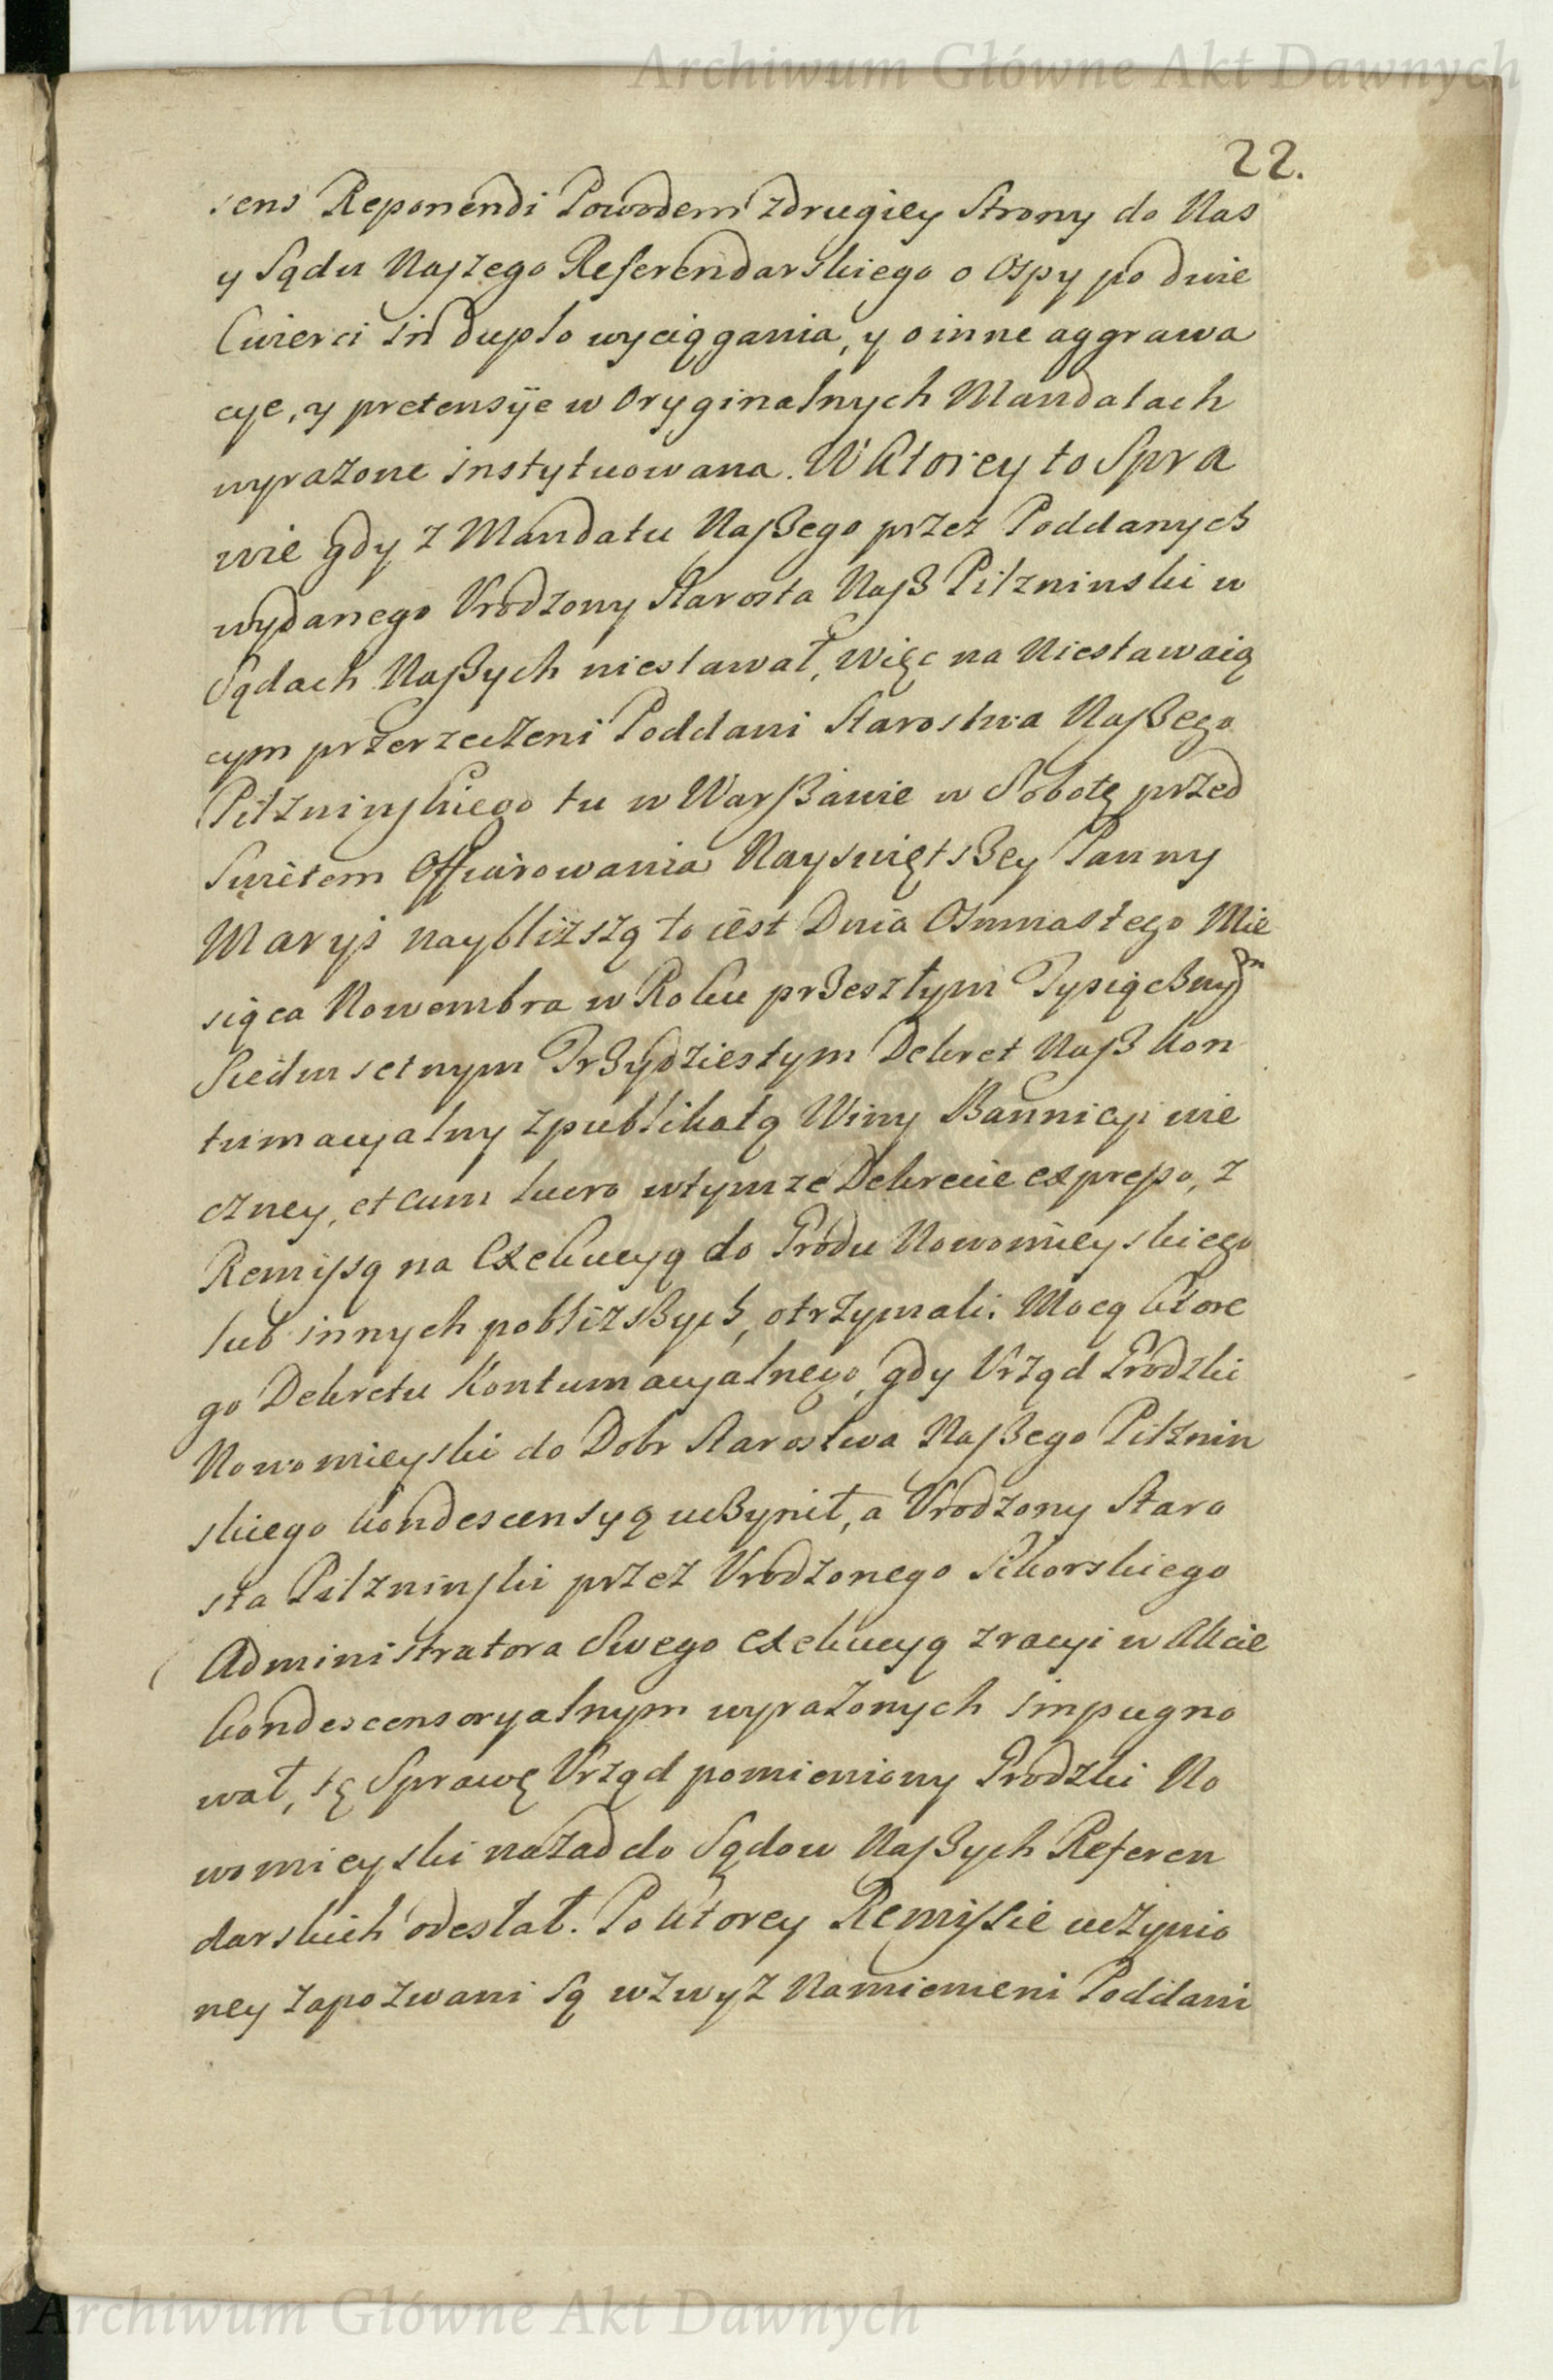 Archiwum Główne Akt Dawnych
22.
sens Reponendi Powodem z drugiey Strony do Nas
y Sądu Naszego Referendarskiego o Ospy po dwie
Cwierci in duplo wyciągania, y o inne aggrawa
cye, y pretensye w Oryginalnych Mandatach
wyrazone instytuowana. W Ktorey to Spra
wie gdy z Mandatu Naszego przez Poddanych
wydanego Vrodzony Starosta Nasz Pilzninski w
Sądach Naszych niestawał, więc na Niestawaią
cym przerzeczeni Poddani Starostwa Naszego
Pilzninskiego tu w Warszawie w Sobotę przed
Swiętem Offiarowania Nayswiętszey Panny
Maryi naybliższą to iest Dnia Osmnastego Mie
siąca Nowembra w Roku przeszłym Tysiącznym
Siedmsetnym Trzydziestym Dekret Nasz Kon
tumacyalny z publikatą Winy Bannicyi wie
czney, et cum lucro w tymze Dekrecie expresso, z
Remissą na Exekucyą do Grodu Nowomieyskiego
lub innych pobliższych, otrzymali. Mocą ktore
go Dekretu Kontumacyalnego, gdy Vrząd Grodzki
Nowomieyski do Dobr Starostwa Naszego Pilznin
skiego kondescensyą uczynił, a Vrodzony Staro
sta Pilzninski przez Vrodzonego Sikorskiego
Administratora Swego exekucyą z racyi w Akcie
kondescensoryalnym wyrażonych impugno
wał, tę Sprawę Vrząd pomieniony Grodzki No
womieyski nazad do Sądow Naszych Referen
darskich odesłał. Po ktorey Remissie uczynio
ney zapozwani są wzwyz Namienieni Poddani
Archiwum Główne Akt Dawnych